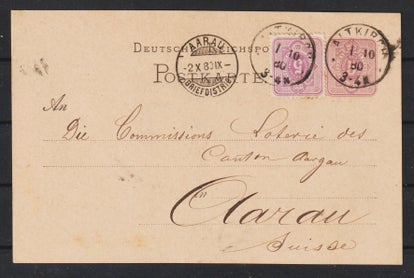 DEUTSCHE REICHSPOST
POSTKARTE
AARAU
-2 X 80 IX-
BRIEFDISTR.
ALTKIRCH
1 10
80
3-4N
ALTKIRCH
1 10
80
3-4N
An
Die Commissions Loterie des
Canton Aargau
Aarau
Suisse